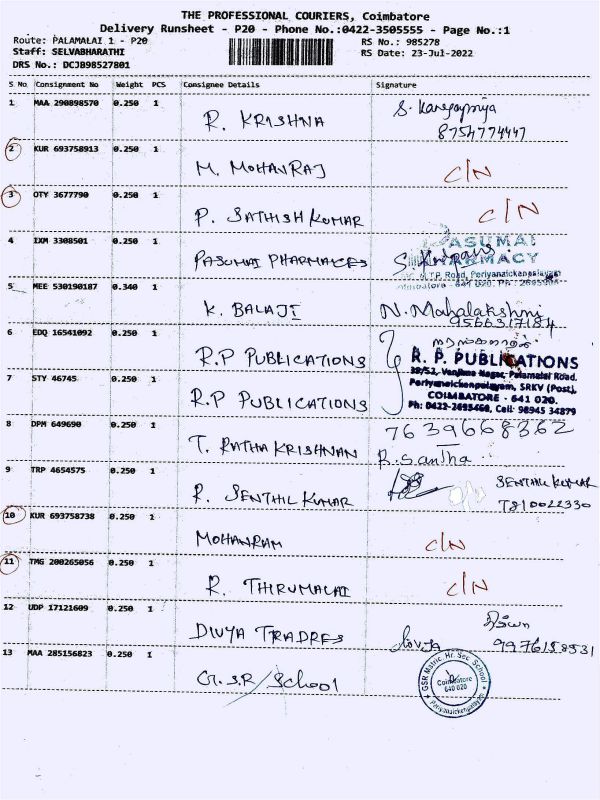 THE PROFESSIONAL COURIERS, Coimbatore
Delivery Runsheet - P20 - Phone No.:0422-3505555 - Page No.:1
Route: PALAMALAI 1 - P20 RS No.: 985278
Staff: SELVABHARATHI RS Date: 23-Jul-2022
DRS No.: DCJB98527801
S No Consignment No Weight PCS Consignee Details Signature
1 MAA 290898570 0.250 1 R. KRISHNA S.
8754774447
2 KUR 693758913 0.250 1 M. MOHANRAJ C/N
3 OTY 3677790 0.250 1 P. SATHISH KUMAR C/N
4 IXM 3308501 0.250 1 PASUMAI PHARMACES S.
PASUMAI
PHARMACY
M.T.P. Road, Periyanaickenpalayam
641 020. Ph:
5 MEE 530190187 0.340 1 K. BALAJI N. Mahalakshmi
9566317184
6 EDQ 16541092 0.250 1 R.P PUBLICATIONS
R. P. PUBLICATIONS
7 STY 46745 0.250 1 R.P PUBLICATIONS
Palamalai Road,
Periyanaickenpalayam, SRKV (Post),
COIMBATORE - 641 020.
Cell: 98945 34879
8 DPM 649690 0.250 1 T. RATHA KRISHNAN 7639668362
B. Santha
9 TRP 4654575 0.250 1 R. SENTHIL KUMAR SENTHIL KUMAR
7810022330
10 KUR 693758738 0.250 1 MOHANRAM C/N
11 TMG 200265056 0.250 1 R. THIRUMALAI C/N
12 UDP 17121609 0.250 1 DIVYA TRADRES
9976158531
13 MAA 285156823 0.250 1 G.S.R / School
GSR Matric. Hr. Sec. School
Coimbatore
640 020
Periyanaickenpalayam